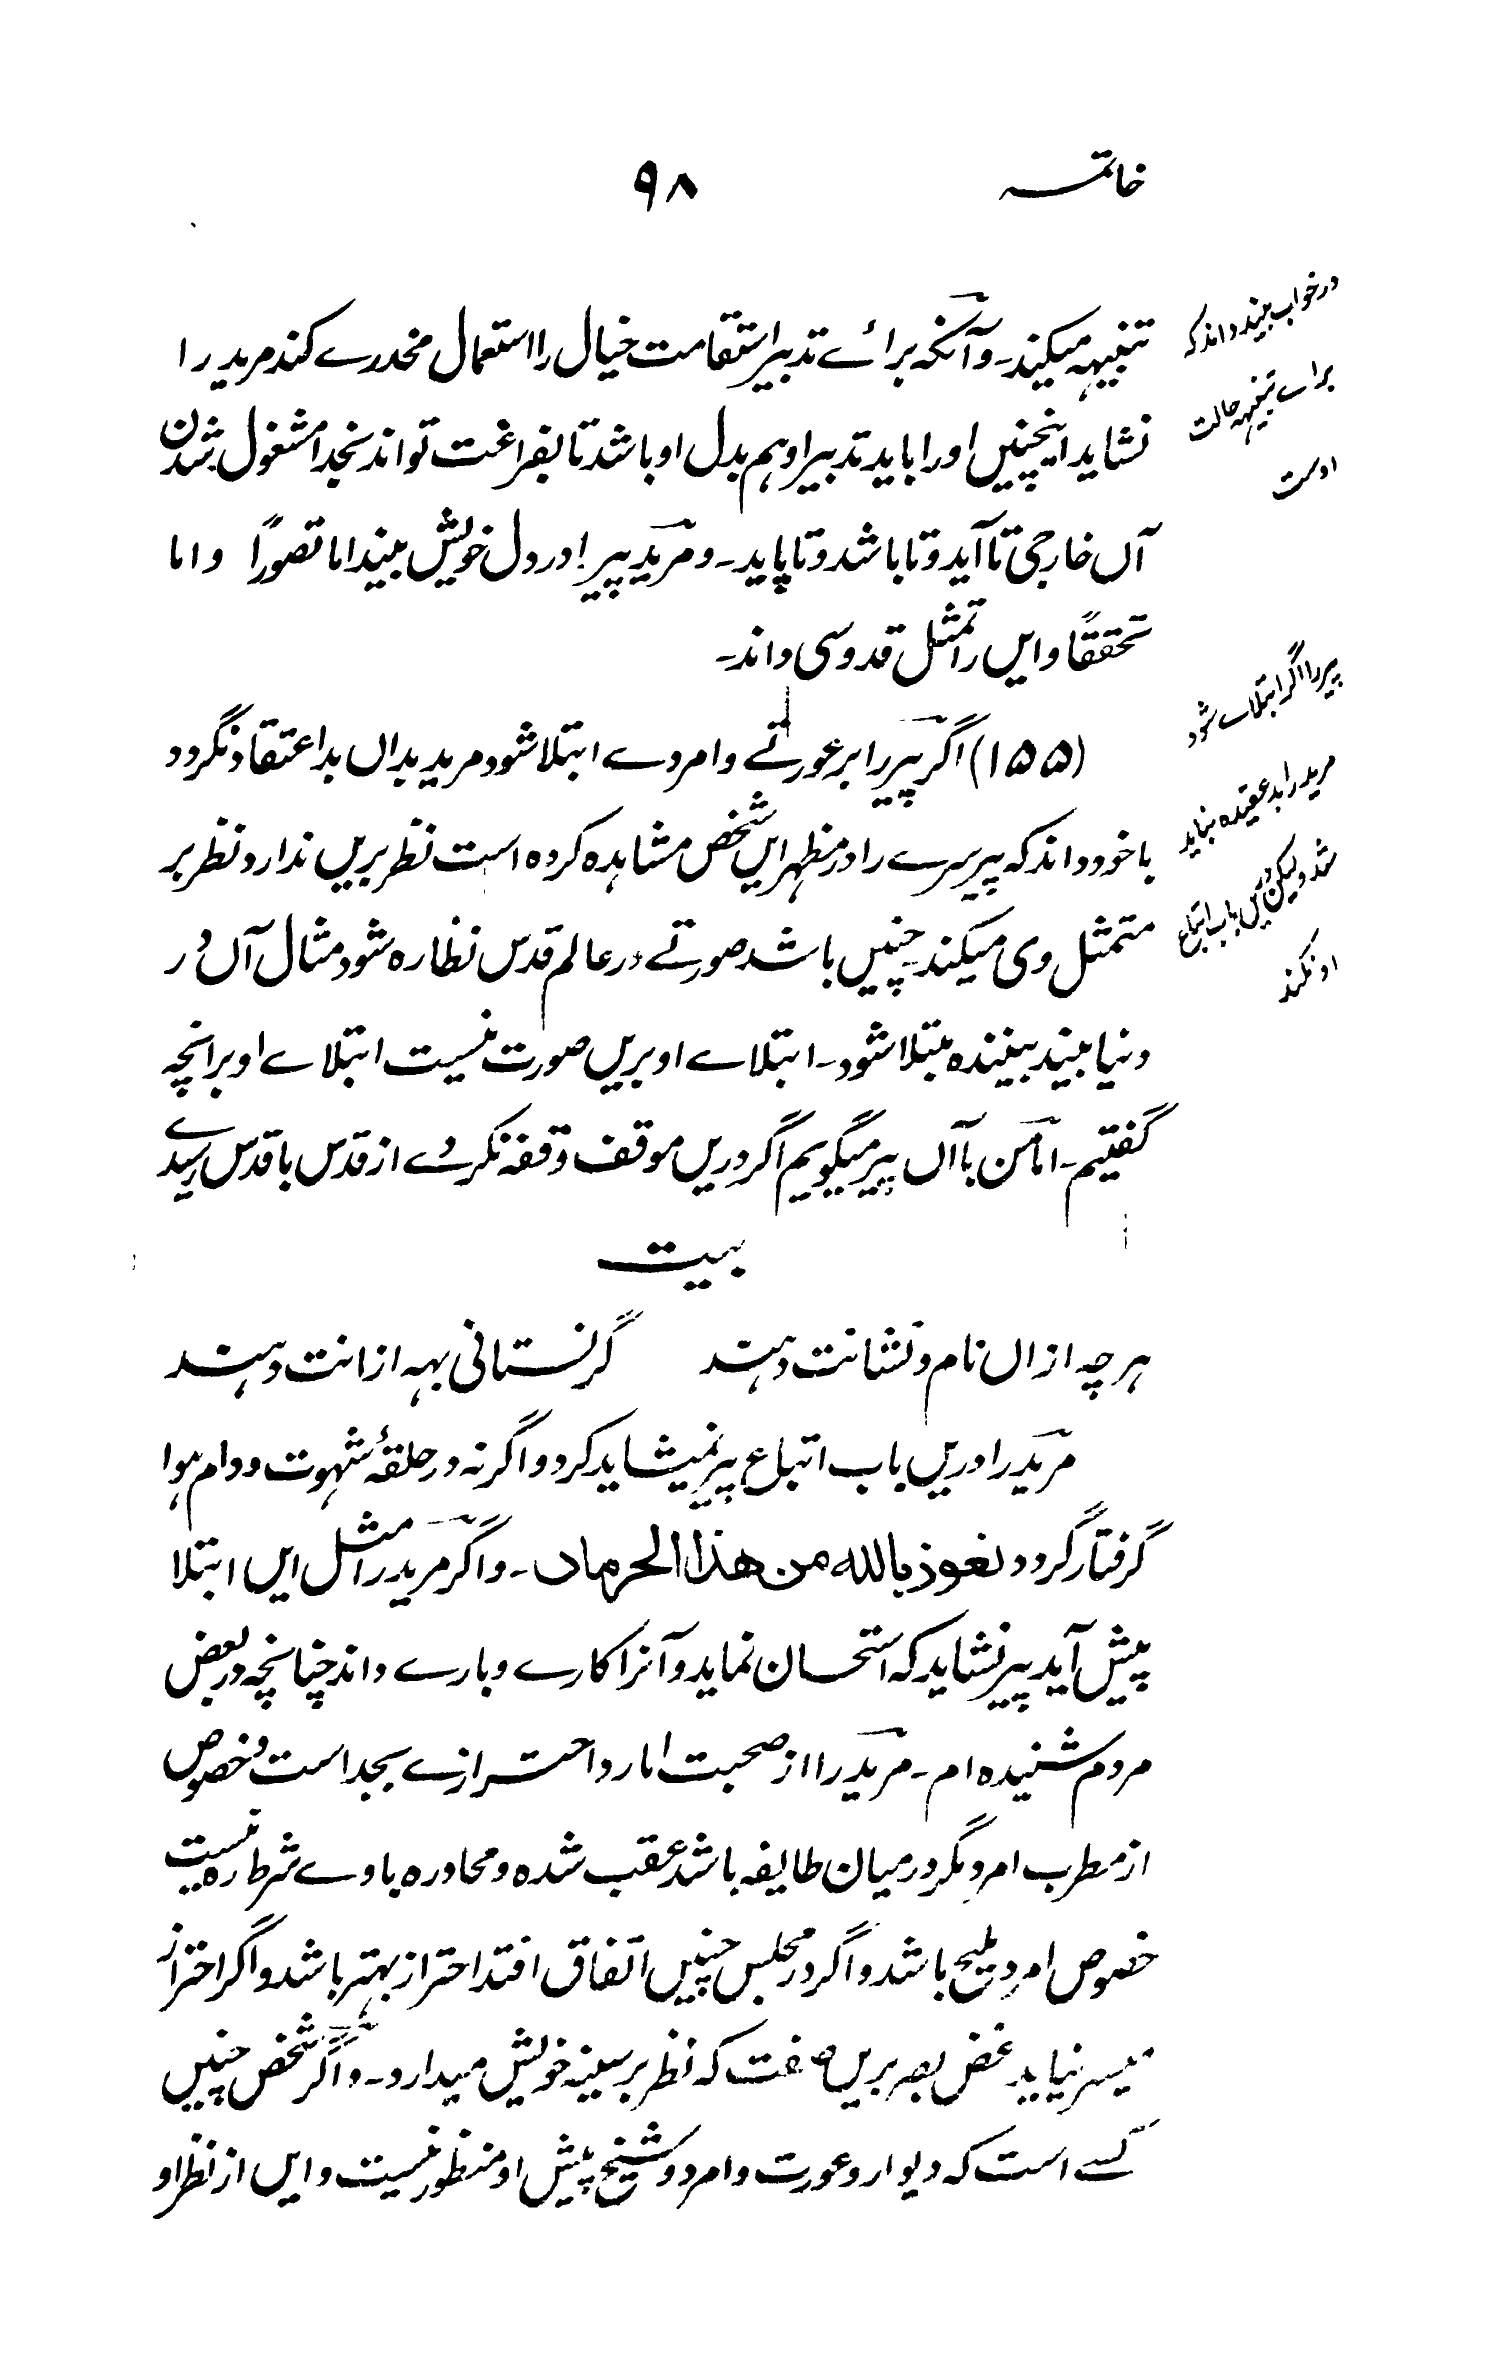 خاتمہ ۹۸
تنبیہہ میکند۔ وآنکہ برائے تدبیر استقامت خیال را استعمال مخدرے کند مرید را
نشاید اینچنیں اورا باید تدبیر او ہم بدل او باشد تا بفراغت تواند بخدا مشغول شدن
آں خارجی تا آید و تا باشد و تا پاید۔ و مرید پیر را در دل خویش بیند اما تصوراً و اما
تحققاً و ایں را تمثل قدوسی داند۔
(۱۵۵) اگر پیر را بر عورتے و امردے ابتلا شود مرید بداں بد اعتقاد نگردد
با خود داند کہ پیر سرے را در مظہر ایں شخص مشاہدہ کردہ است نظر بریں ندارد نظر بر
متمثل وی میکند چنیں باشد صورتے در عالم قدس نظارہ شود مثال آں در
دنیا بیند بینندہ مبتلا شود۔ ابتلاے او بریں صورت نیست ابتلاے او برانچہ
گفتیم۔ اما من با آں پیر میگویم اگر دریں موقف وقفہ نکردے از قدس باقدس رسیدے
بیت
ہر چہ ازاں نام و نشانت دہند گر نستانی بہہ ازانت دہند
مرید را دریں باب اتباع پیر نمیشاید کرد و اگر نہ در حلقۂ شہوت و دام ہوا
گرفتار گردد نعوذ باللہ من ھذا الحرمان۔ و اگر مرید را مثل ایں ابتلا
پیش آید پیر نشاید کہ استحسان نماید و آنرا کارے و بارے داند چنانچہ در بعض
مردم شنیدہ ام۔ مرید را از صحبت امارد احترازے بجد است و خصوص
از مطرب امرد مگر در میان طایفہ باشد عقب شدہ و محاورہ باوے شرط رہ نیست
خصوص امرد ملیح باشد و اگر در مجلس چنیں اتفاق افتد احتراز بہتر باشد و اگر احتراز
میسر نیاید غض بصر بریں صفت کہ نظر بر سینہ خویش میدارد۔ و اگر شخص چنیں
کسے است کہ دیوار و عورت و امرد و شیخ پیش او منظور نیست و ایں از نظر او
در خواب بیند داند کہ
براے تنبیہہ حالت
اوست
پیر را اگر ابتلاے شود
مرید را بد عقیدہ نباید
شد و لیکن دریں باب اتباع
او نکند